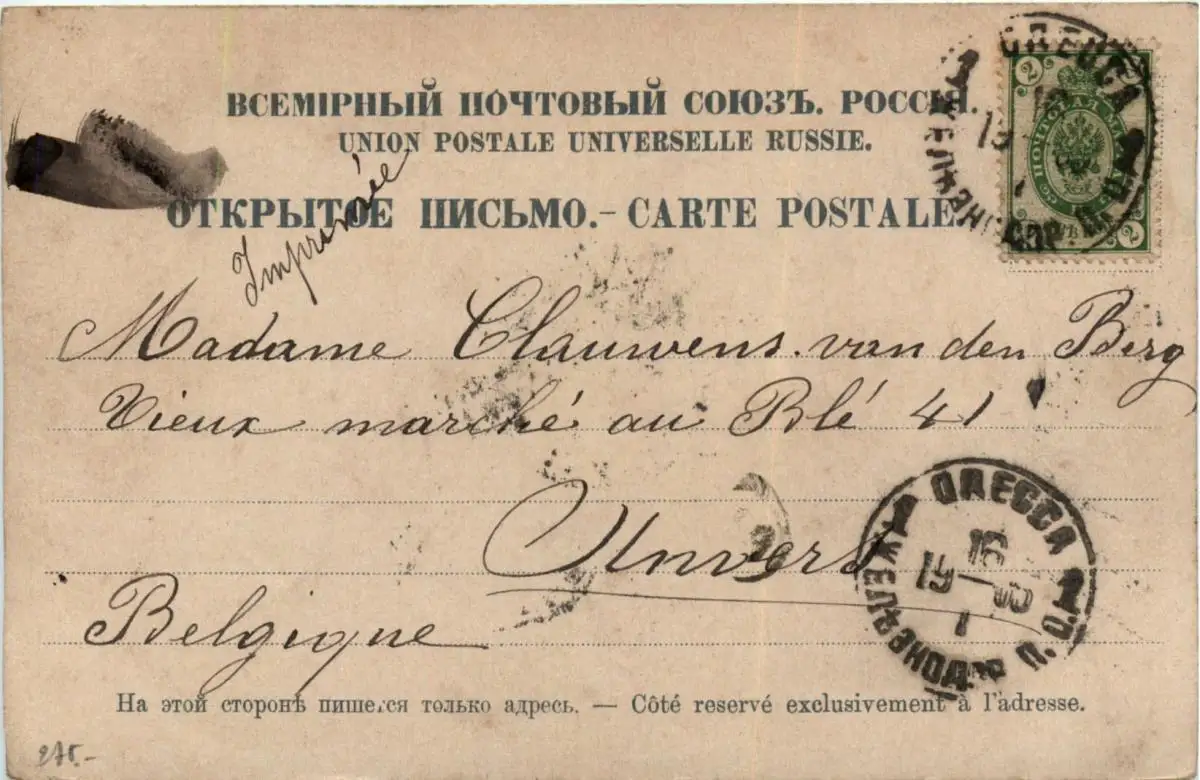 ВСЕМІРНЫЙ ПОЧТОВЫЙ СОЮЗЪ. РОССІЯ.
UNION POSTALE UNIVERSELLE RUSSIE.
ОТКРЫТОЕ ПИСЬМО. - CARTE POSTALE.
Imprimée
2 2
ПОЧТОВАЯ МАРКА
2 2
ОДЕССА
19
ЖЕЛѢЗНОДОР. П. О.
1 1
Madame Clauwens. van den Berg
Vieux marché au Blé 41
Anvers
Belgique
ОДЕССА
1 1
16
19 03
1
ЖЕЛѢЗНОДОР. П. О.
На этой сторонѣ пишется только адресъ. — Côté reservé exclusivement à l'adresse.
275.-